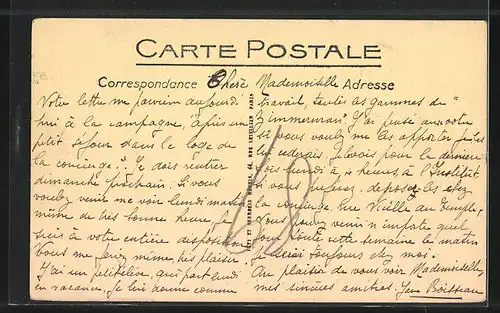 CARTE POSTALE
Correspondance
Adresse
Chère Mademoiselle
Votre lettre me parvient aujourd'
hui à la campagne, après un
petit séjour dans la loge de
la concierge. Je dois rentrer
dimanche prochain. Si vous
voulez venir me voir lundi matin
même de très bonne heure, je
suis à votre entière disposition
Vous me ferez même très plaisir.
J'ai un petit élève, qui part lundi
en vacances, je lui donne comme
travail, toutes les gammes de "
Zimmerman". J'ai
si vous voulez me les apporter, je les
lui cèderais. Je la vois pour la dernière
fois lundi à 10 heures, à l'Institut
si vous préférez. déposez les chez
la concierge. Rue Vieille du Temple,
Vous pouvez venir n'importe quel
jour toute cette semaine le matin
je serai toujours chez moi.
Au plaisir de vous voir Mademoiselle,
mes sincères amitiés. Boisseau